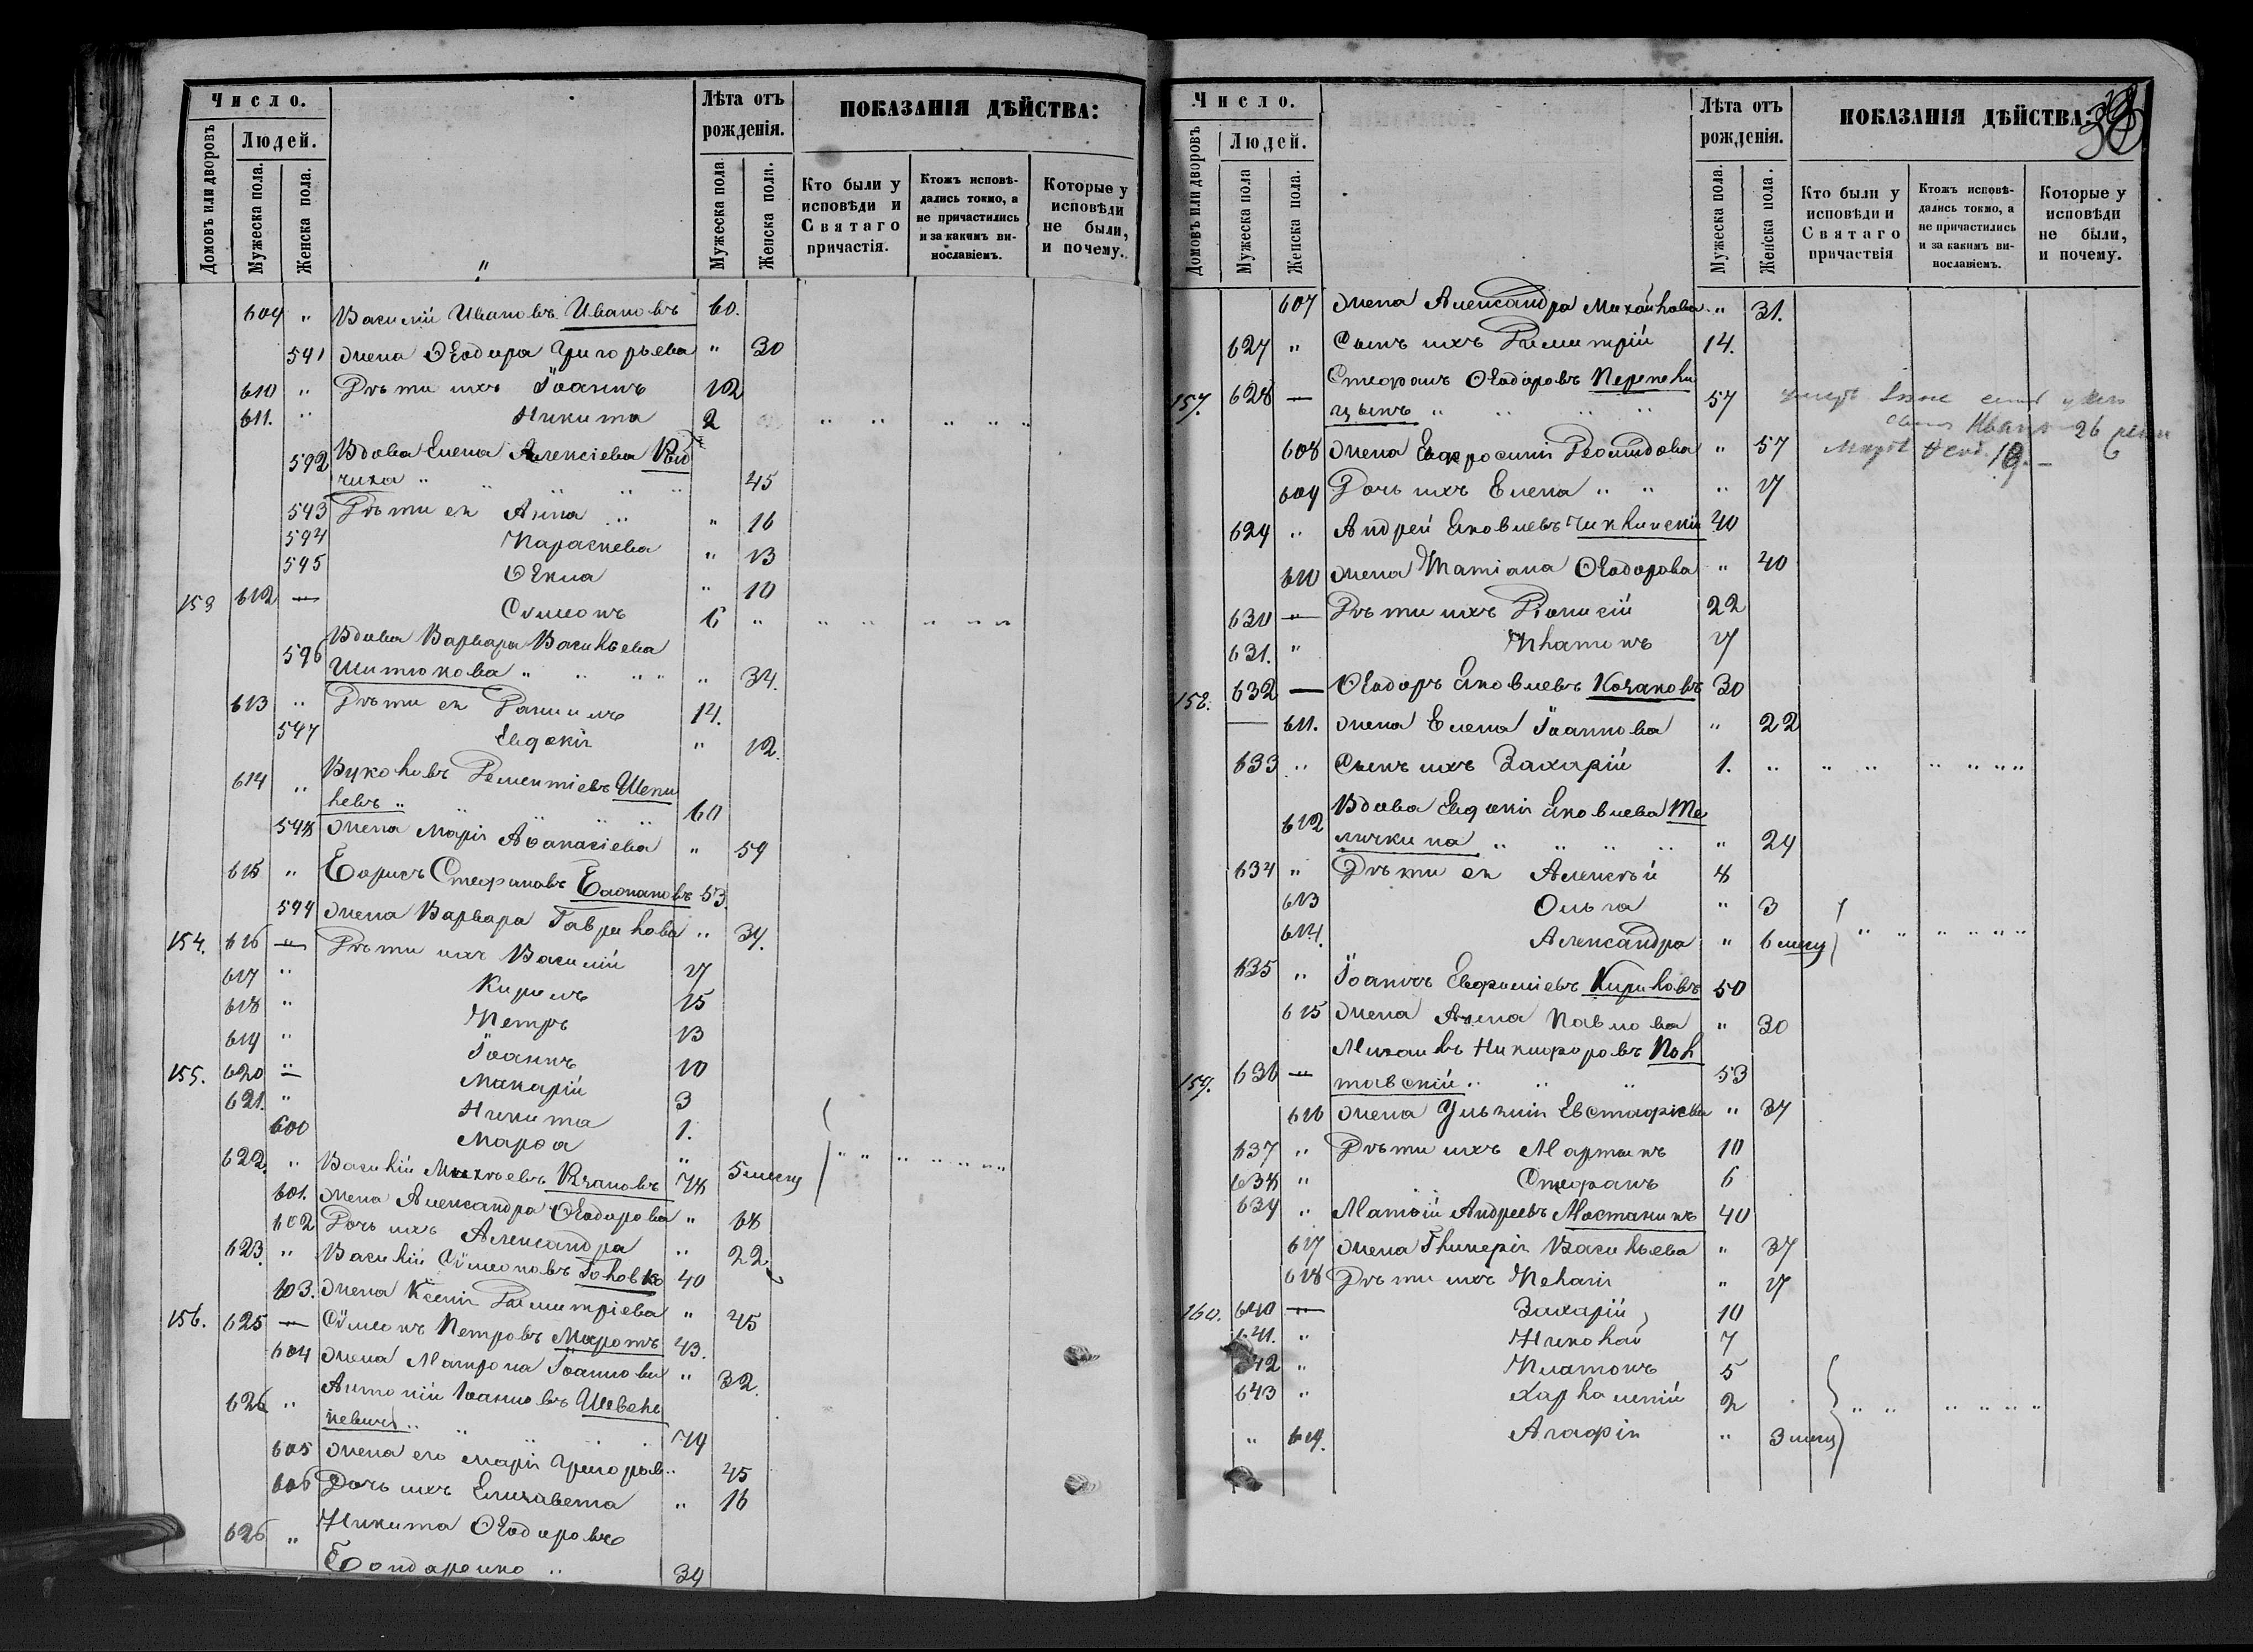 Число.
Людей.
Домовъ или дворовъ
Мужеска пола.
Женска пола.
Лѣта отъ рожденія.
Мужеска пола
Женска пола.
ПОКАЗАНІЯ ДѢЙСТВА:
Кто были у исповѣди и Святаго причастія.
Ктожъ исповѣдались токмо, а не причастились и за какимъ винословіемъ.
Которые у исповѣди не были, и почему.
609 " Василій Ивановъ Ивановъ 60.
591 жена Ѳеодора Григорьева " 30
610 " Дѣти ихъ Іоаннъ 12
611. " Никита 2 " " " " "
592 Вдова Елена Алексіева
чиха " " " " 45
593 Дѣти ея Анна " " 16
594 Параскева " 13
595 Ѳекла " 10
153 612 — Сѵмеонъ 6 " " " " " "
596 Вдова Варвара Васильева
Шитюкова " " " " " 34.
613 " Дѣти ея Даніилъ 14.
597 Евдокія " 12.
614 " Вуколъ Дементіевъ Шепи
левъ " " " " 60
598 жена Марія Аѳанасіева " 59
615 " Борисъ Стефановъ 53.
599 жена Варвара Гаврилова " 39.
154. 616 — Дѣти ихъ Василій 17
617 " Кирилъ 15
618 " Петръ 13
619 " Іоаннъ 10
155. 620 — Макарій 3
621. " Никита 1.
600 Марѳа " 5 месяц " " " " " " "
622. " Василій 78
601. жена Александра Ѳеодорова " 68
602 Дочь ихъ Александра " 22.
623. " Василій Сѵмеоновъ Головко 40
603. жена Ксенія Димитріева " 45
156. 625 — Сѵмеонъ Петровъ Маротъ 43.
604 жена Матрона Іоаннова " 32.
626 " Антоній Іоанновъ Шевеле
невичъ " " " " 79
605 жена его Марія Григорьев " 45
606 Дочь ихъ Елизавета " 16
626 " Никита Ѳеодоровъ
Бондаренко " 39
Число.
Людей.
Домовъ или дворовъ
Мужеска пола
Женска пола.
Лѣта отъ рожденія.
Мужеска пола.
Женска пола.
ПОКАЗАНІЯ ДѢЙСТВА:
Кто были у исповѣди и Святаго причаствія
Ктожъ исповѣдались токмо, а не причастились и за какимъ винословіемъ.
Которые у исповѣди не были, и почему.
607 жена Александра Михайлова " 31.
627 " Сынъ ихъ Димитрій 14.
157. 628 — Стефанъ Ѳеодоровъ Перепели
цынъ " " " " 57
608 жена Евфросинія " 57
609 Дочь ихъ Елена " " " 17
629 " Андрей Яковлевъ 40
610 жена Татіана Ѳеодорова " 40
630 — Дѣти ихъ Діонисій 22
631. " Платонъ 17
158. 632 — Ѳеодоръ Яковлевъ Козаковъ 30
— 611. жена Елена Іоаннова " 22
633 " Сынъ ихъ Захарій 1. " " " " " " "
612 Вдова Евдокія Яковлева Те
личкина " " " " " 24
634 " Дѣти ея Алексѣй 8
613 Ольга " 3
614. Александра " 6 месяц " " " " " "
635 " Іоаннъ Евфиміевъ Кириловъ 50
615 жена Анна Павлова " 30
159. 636 — Михаилъ Никифоровъ Пол
тавскій " " " 53
616 жена Ульянія Евстафіева " 37
637 " Дѣти ихъ Мартынъ 10
638 " Стефанъ 6
639 " Матѳій Андреевъ Мостанинъ 40
617 жена Гликерія Васильева " 37
618 Дѣти ихъ Пелагія " 17
160. 640 — Захарій 10
641. " Николай 7
642 " Платонъ 5
643 " Харлампій 2
" 619. Агафія " 3 месяц " " " " " "